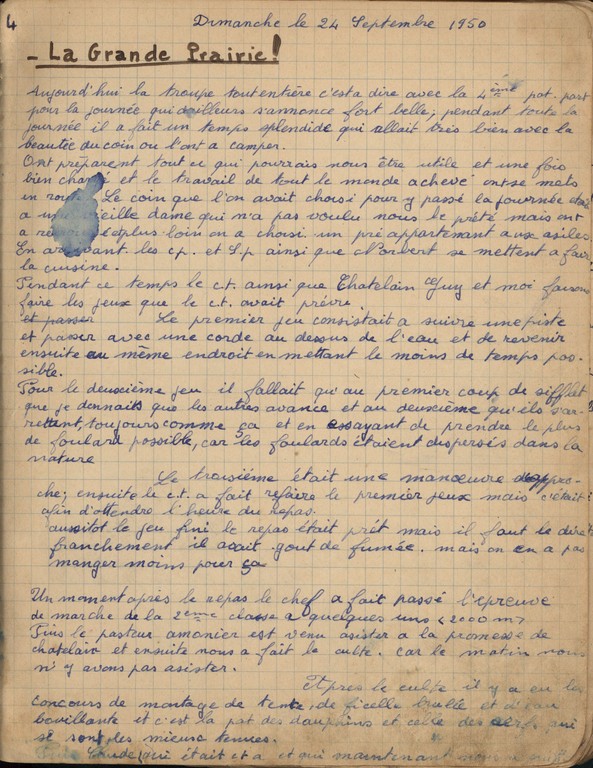 4
Dimanche le 24 Septembre 1950
- La Grande Prairie!
Aujourd'hui la troupe tout entière c'est a dire avec la 4ème pat. part
pour la journée qui d'ailleurs s'annonce fort belle; pendant toute la
journée il a fait un temps splendide qui allait très bien avec la
beautée du coin ou l'ont a camper.
Ont préparent tout ce qui pourrais nous être utile et une fois
bien et le travail de tout le monde achevé ont se mets
en Le coin que l'on avait choisi pour y passé la journée était
a une vieille dame qui n'a pas voulu nous le prété mais ont
a plus loin on a choisi un pré appartenant aux asiles.
En arrivant les cp. et s.p ainsi que Norbert se mettent a faire
la cuisine.
Pendant ce temps le c.t. ainsi que Chatelain Guy et moi faisons
faire les jeux que le c.t. avait prévu.
et passer Le premier jeu consistait a suivre une piste
et passer avec une corde au dessus de l'eau et de revenir
ensuite au même endroit en mettant le moins de temps pos-
sible.
Pour le deuxième jeu il fallait qu'au premier coup de sifflet
que je donnais que les autres avance et au deuxième qu'ils s'ar-
rettent, toujours comme ça et en essayant de prendre le plus
de foulard possible, car les foulards étaient dispersés dans la
nature
Le troisième était une manœuvre d'appro-
che; ensuite le c.t. a fait refaire le premier jeux mais c'était
afin d'attendre l'heure du repas.
aussitot le jeu fini le repas était prêt mais il faut le dire
franchement il avait gout de fumée. mais on en a pas
manger moins pour ça
Un moment après le repas le chef a fait passé l'épreuve
de marche de la 2ème classe a quelques uns <2000 m>
Puis le pasteur amonier est venu asister a la promesse de
chatelain et ensuite nous a fait le culte. car le matin nous
n'y avons pas asister.
Après le culte il y a eu les
concours de montage de tente, de ficelle brulée et d'eau
bouillante et c'est la pat des dauphins et celle des cerfs qui
se sont les mieux tenues.
qui était ct a et qui maintenant